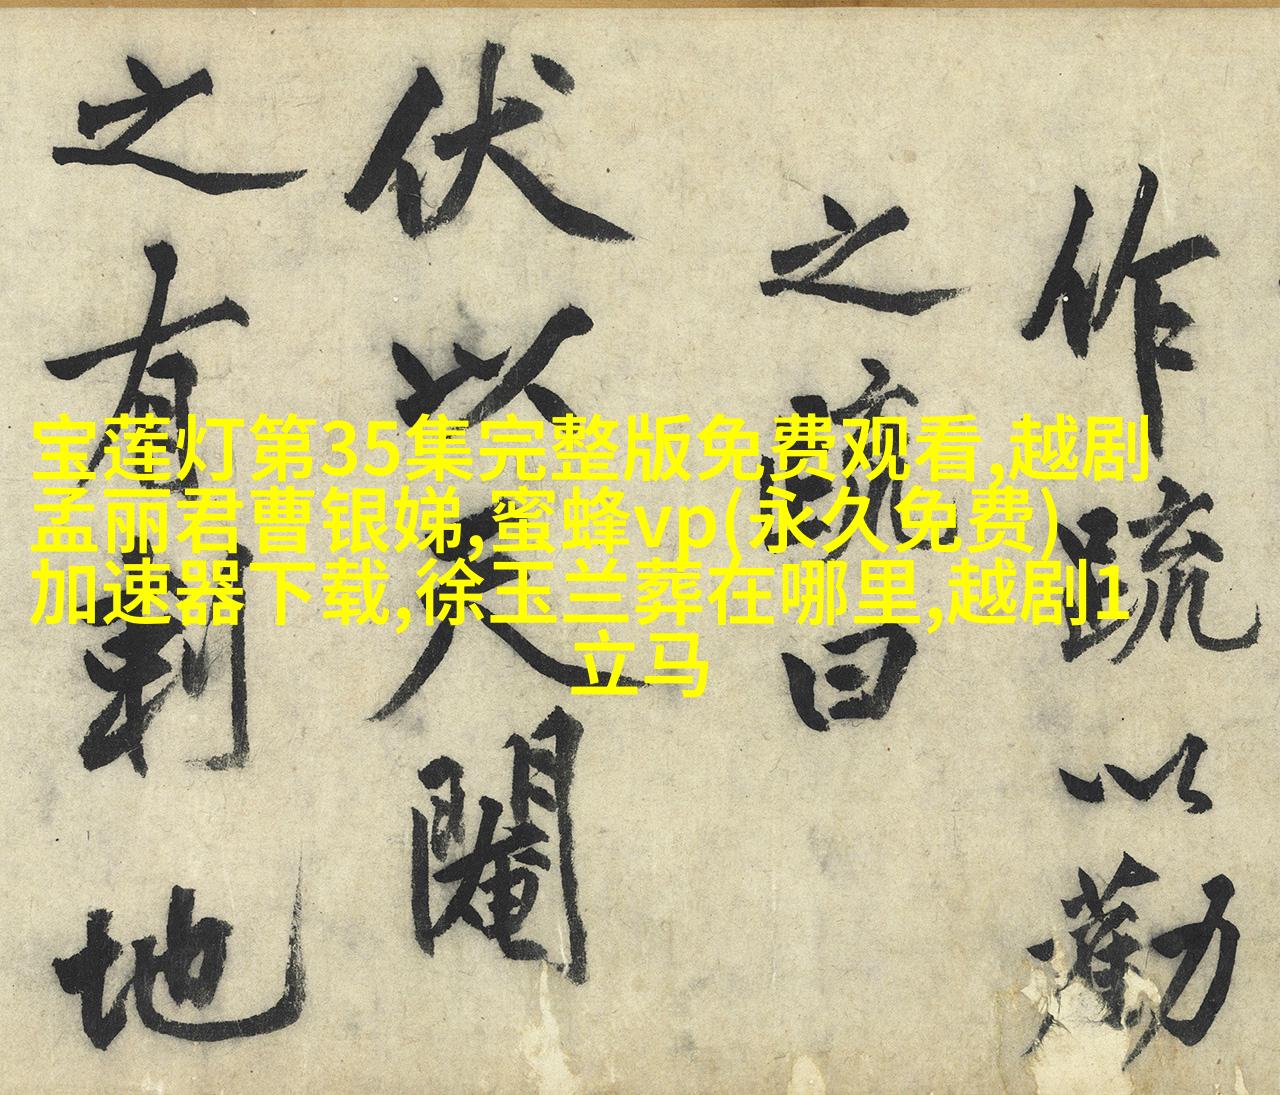 宝莲灯第35集完整版免费观看,越剧
孟丽君曹银娣,蜜蜂vp(永久免费)
加速器下载,徐玉兰葬在哪里,越剧1
立马
作疏以勸
之疏曰
伏以天閹
之有刹地